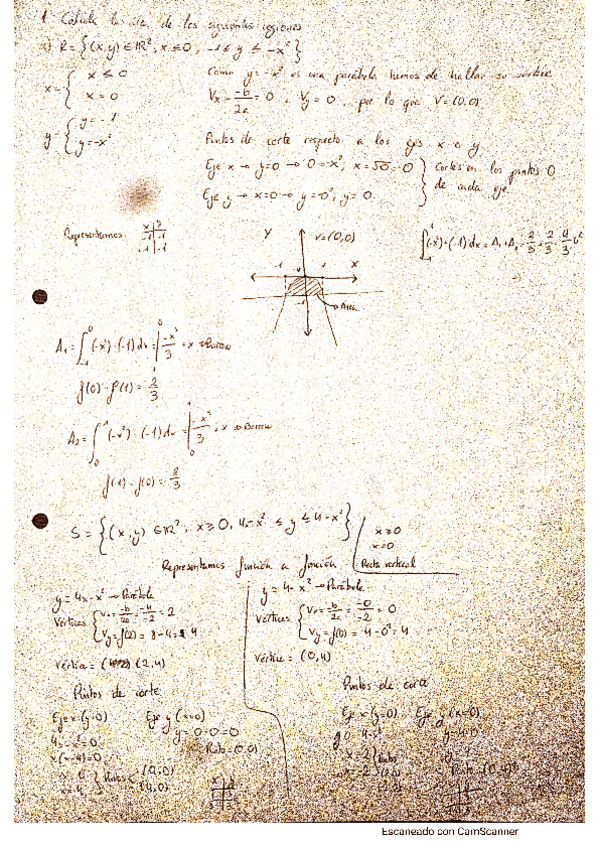 1. Calcula el área de las siguientes regiones
a) R = {(x,y) ∈ IR², x ≤ 0, -1 ≤ y ≤ -x²}
x = { x ≤ 0
x = 0
y = { y = -1
y = -x²
Como y = -x² es una parábola hemos de hallar su vértice
Vx = -b/2a = 0, Vy = 0, por lo que V = (0,0)
Puntos de corte respecto a los ejes x e y
Eje x → y=0 → 0 = -x², x = √0 = 0
Eje y → x=0 → y = 0², y = 0.
Cortes en los puntos 0
de cada eje
Representamos
x y
-1 -1
1 -1
Y V = (0,0)
-1 X
-1 → Área
∫ (-x²) - (-1) dx = A₁ + A₂ = 2/3 + 2/3 = 4/3 u²
A₁ = ∫ (-x²) - (-1) dx = -x³/3 + x → Barrow
f(0) - f(1) = 2/3
A₂ = ∫ (-x²) - (-1) dx = -x³/3 + x → Barrow
f(1) - f(0) = 2/3
S = {(x,y) ∈ IR², x ≥ 0, 4x - x² ≤ y ≤ 4 - x²}
x ≥ 0
x = 0
Recta vertical
Representamos función a función
y = 4x - x² → Parábola
Vértices { Vx = -b/2a = -4/-2 = 2
Vy = f(2) = 8 - 4 = 4
Vértice = (2,4)
Puntos de corte
Eje x (y=0) Eje y (x=0)
4x - x² = 0 y = 0 - 0 = 0
x(x-4) = 0 Punto = (0,0)
x = 0
x = 4 } Puntos (0,0)
(4,0)
y = 4 - x² → Parábola
Vértices { Vx = -b/2a = -0/-2 = 0
Vy = f(0) = 4 - 0² = 4
Vértice = (0,4)
Puntos de corte
Eje x (y=0) Eje y (x=0)
0 = 4 - x² y = 4 - 0
x = 2
Punto (0,4)
Escaneado con CamScanner